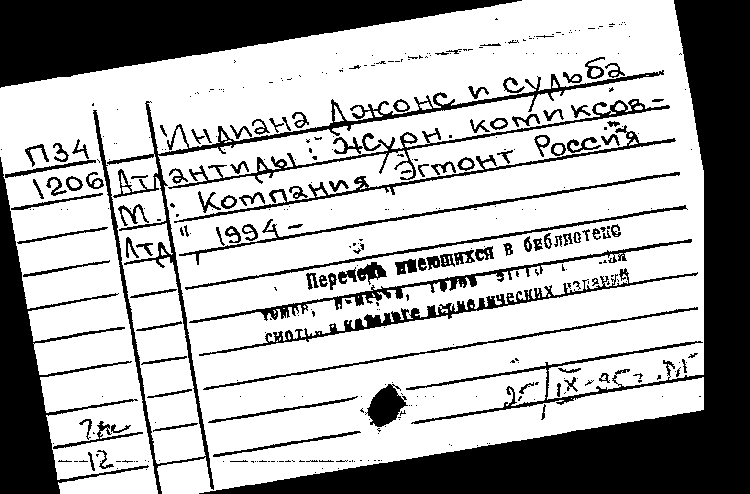 Индиана Джонс и судьба
П34
Атлантиды : Журн. комиксов. -
1206
М. : Компания "Эгмонт Россия
Лтд", 1994 -
Перечень имеющихся в библиотеке
томов, номера, годов этого
смотри в каталоге периодических изданий
25/IX-95г.
12